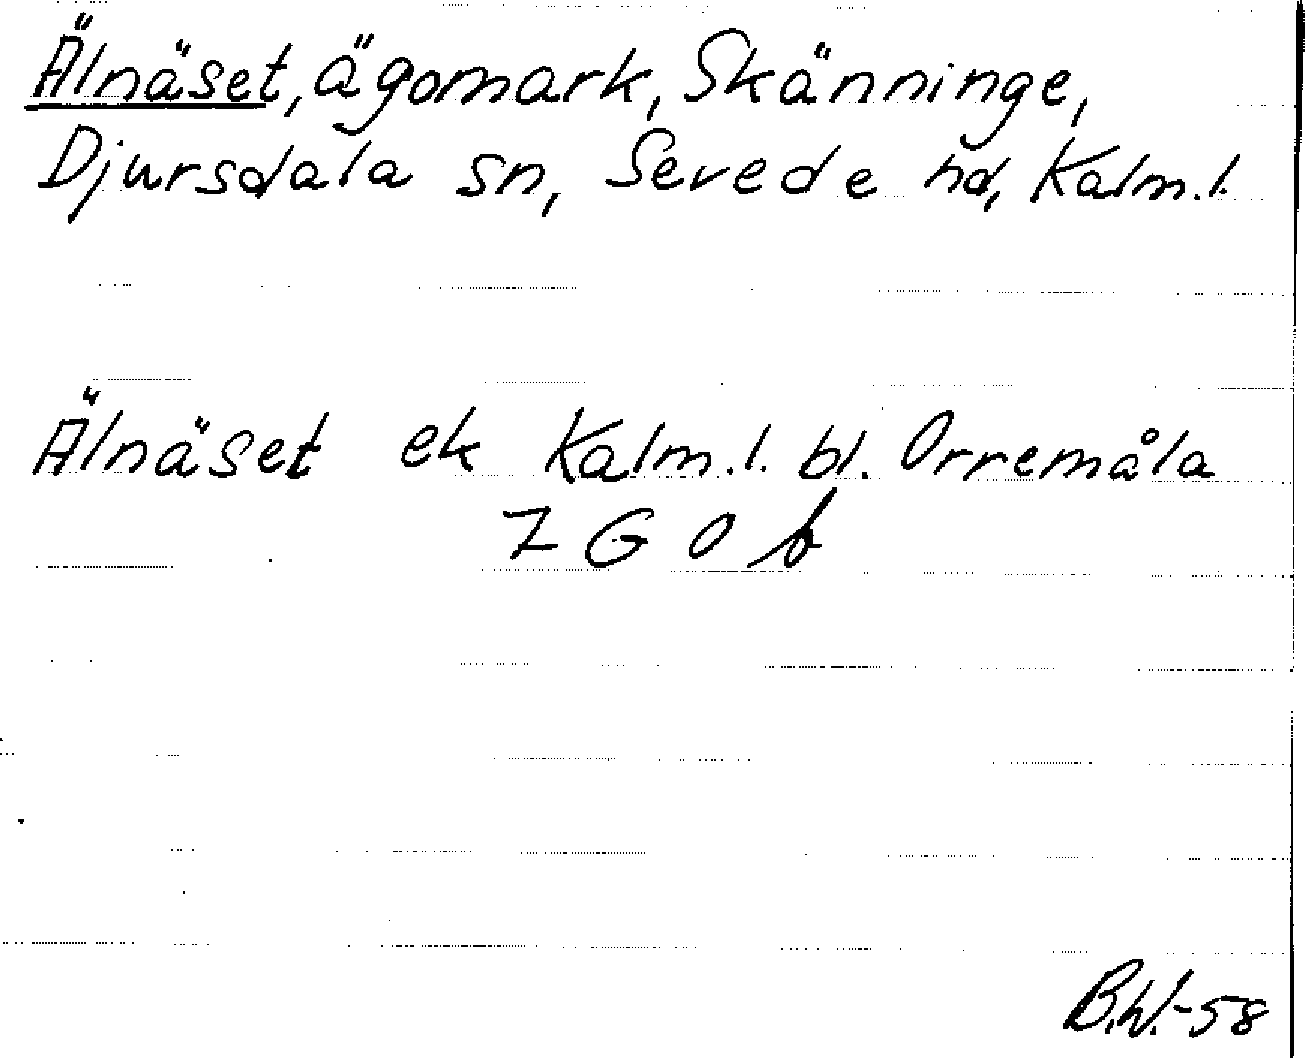 Älnäset, ägomark, Skänninge,
Djursdala sn, Sevede hd, Kalm.l.
Älnäset ek Kalm.l. bl. Orremåla
7 G O f
B.W.-58